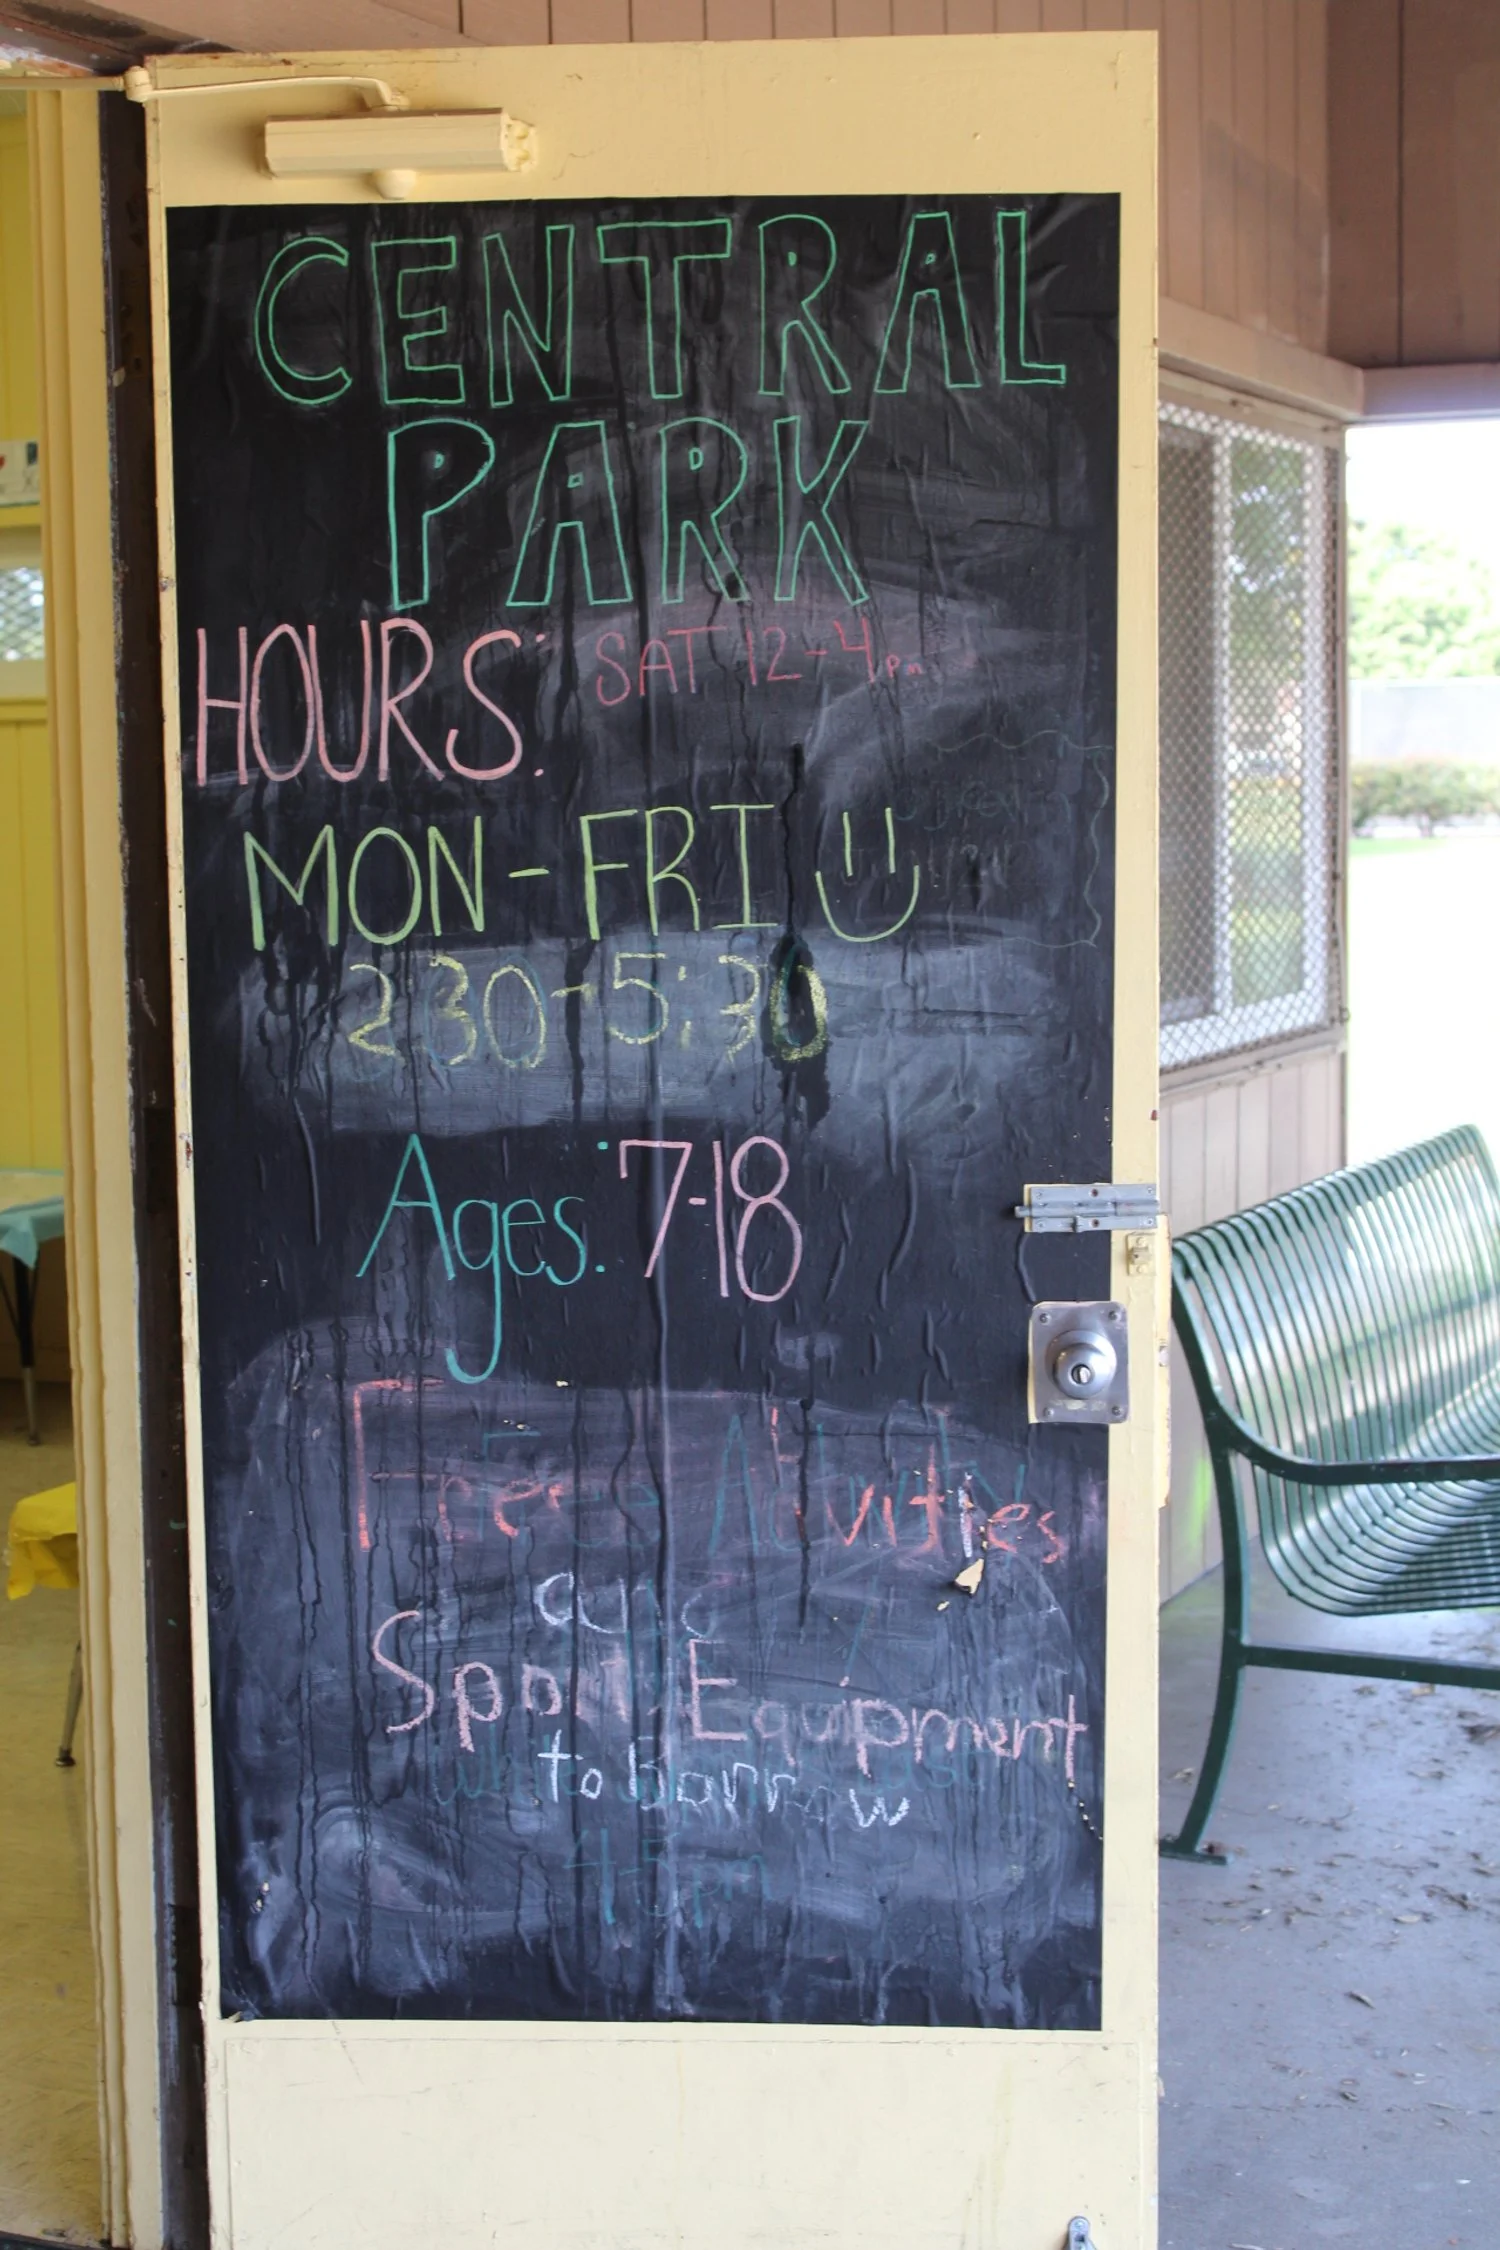 CENTRAL
PARK
HOURS: SAT 12-4pm
MON-FRI
2:30-5:30
Ages: 7-18
Free Activities
and
Sport Equipment
to borrow
4-5pm